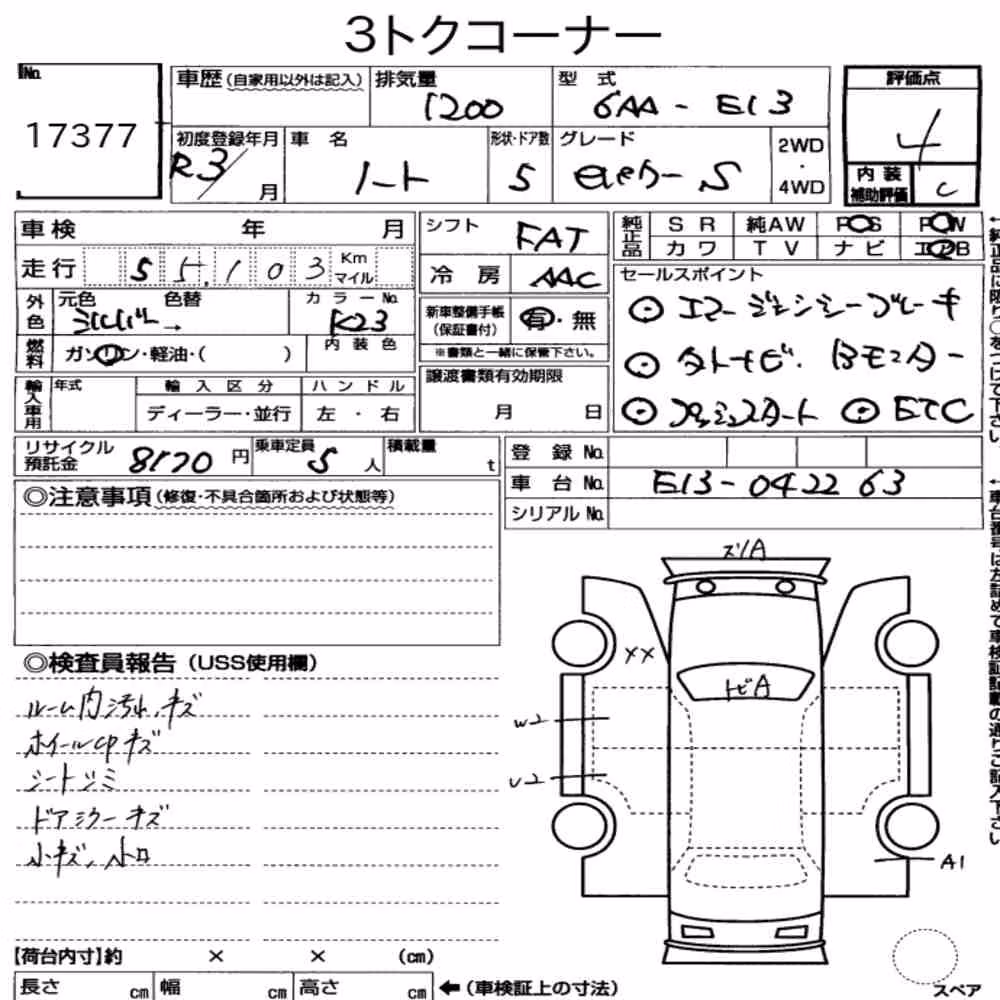 3トクコーナー
No.
17377
車歴(自家用以外は記入)
排気量
1200
型式
6AA-E13
評価点
4
初度登録年月
R3/ 月
車名
ノート
形状・ドア数
5
グレード
S
2WD
・
4WD
内装
補助評価
C
車検 年 月
シフト
FAT
純正品
SR 純AW PS PW
カワ TV ナビ エアB
走行
55,103
Km
マイル
冷房
AAC
セールスポイント
◎エマージェンシーブレーキ
◎タトナビ.Bモニター
◎プッシュスタート ◎ETC
外色
元色 色替
シルバー→
カラーNo.
K23
新車整備手帳
(保証書付)
有・無
※書類と一緒に保管下さい。
燃料
ガソリン・軽油・( )
内装色
輸入車用
年式
輸入区分
ディーラー・並行
ハンドル
左・右
譲渡書類有効期限
月 日
リサイクル
預託金
8170円
乗車定員
5人
積載量
t
登録No.
車台No.
E13-042263
シリアルNo.
◎注意事項(修復・不具合箇所および状態等)
◎検査員報告(USS使用欄)
ルーム内汚れ、キズ
ホイールCPキズ
シートシミ
ドアミラーキズ
小キズ、小凹
ズリA
XX
トビA
W2
U2
A1
スペア
【荷台内寸】約 × × (cm)
長さ cm 幅 cm 高さ cm
←(車検証上の寸法)
←純正品に限り○をつけて下さい。
←車台番号は左詰めで車検証記載の通りご記入下さい。